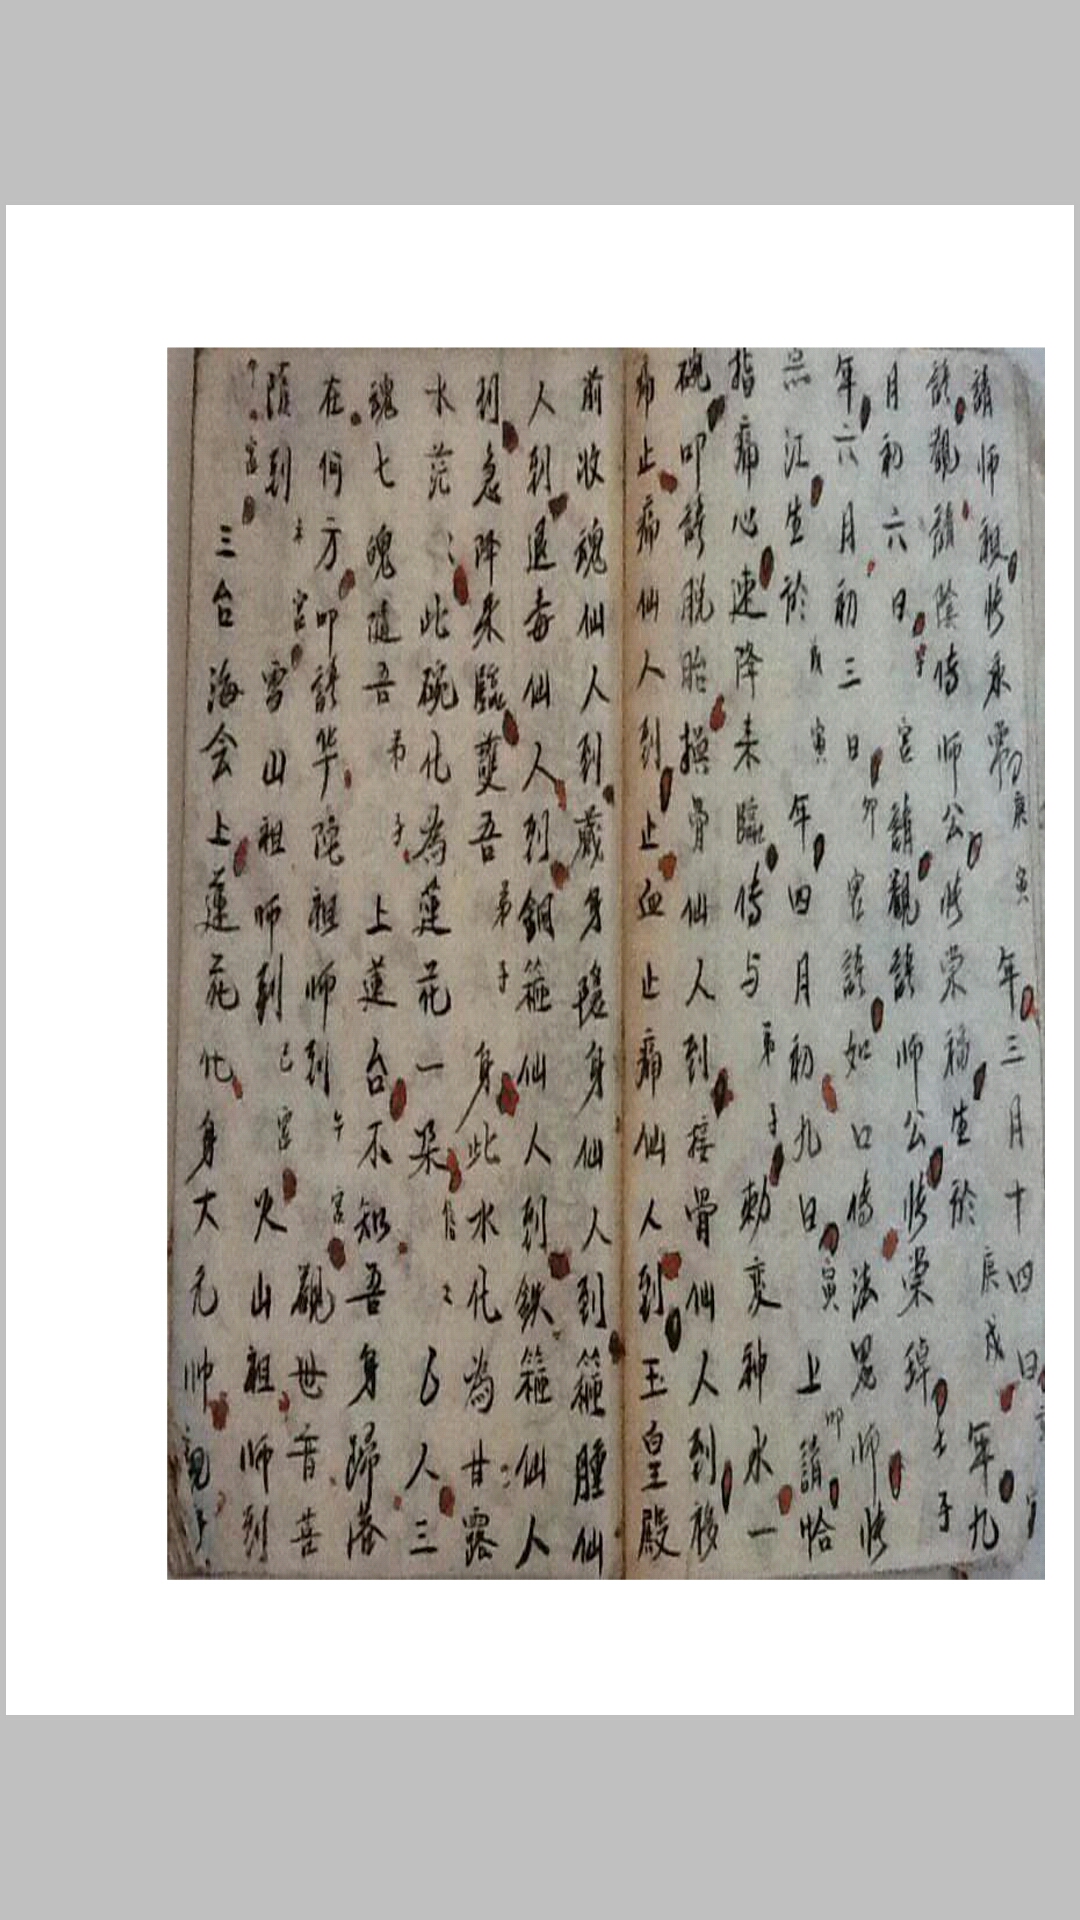 請師祖張永 庚寅年三月十四日
請觀請陰傳師公張榮福生於庚戌年九
月初六日子宮請觀請師公張榮
年六月初三日卯宮請如口傳法 師張
江生於 寅年四月初九日寅上叩請
指痛心速降來臨傳与弟子勅變神水一
碗叩請脱胎換骨仙人到接骨仙人到移
止痛仙人到止血止痛仙人到玉皇殿
前收魂仙人到藏身隱身仙人到箍腫仙
人到退毒仙人到銅箍仙人到鉄箍仙人
到急降來臨變吾弟子身此水化為甘露
水茫茫此碗化為蓮花一朵 人三
魂七魄隨吾弟子上蓮台不知吾身歸落
在何方叩請华陀祖师到午宮觀世音菩
薩到未宮雪山祖师到巳宮火山祖师到
宮三台海会上蓮花化身大元帅